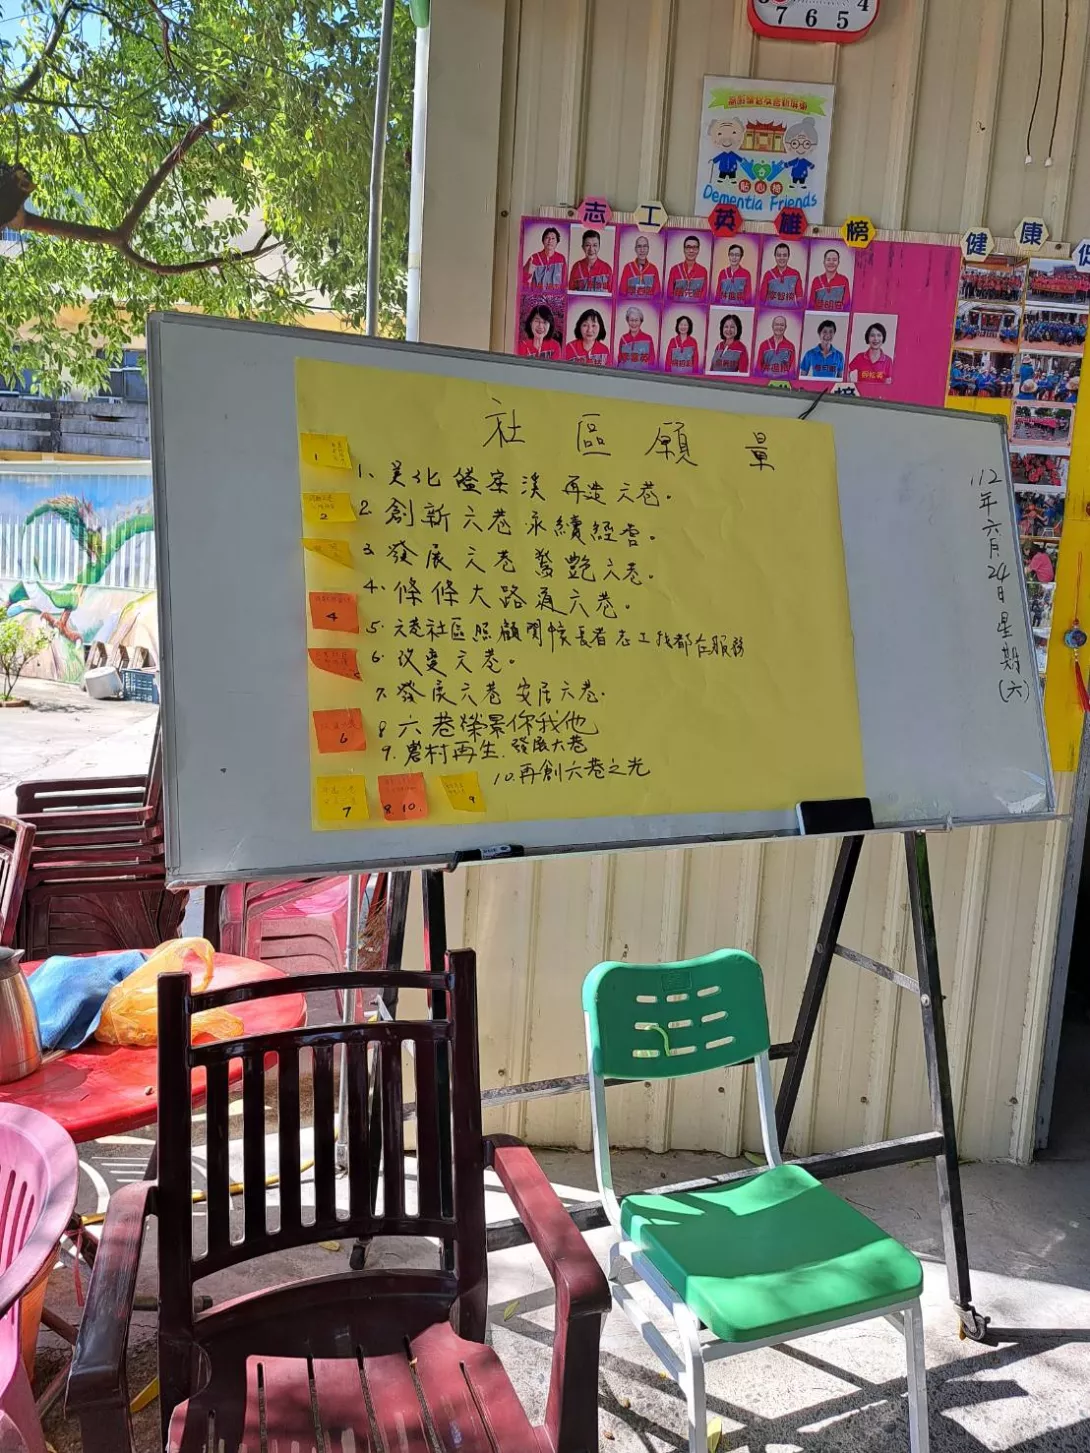 7 6 5 4
Dementia Friends
志工英雄榜
健康促
社區願量
1、美化 溪 再造六巷。
2. 創新六巷永續經營。
3、發展六巷 驚艷六巷。
4、條條大路通六巷。
5、六巷社區照顧關懷長者志工找都在服務
6、改變六巷。
7、發展六巷 安居六巷。
8 六巷榮景你我他
9、農村再生、發展大巷
10、再創六巷之光
1
2
4
6
7
8.10.
9
112年六月24日星期(六)